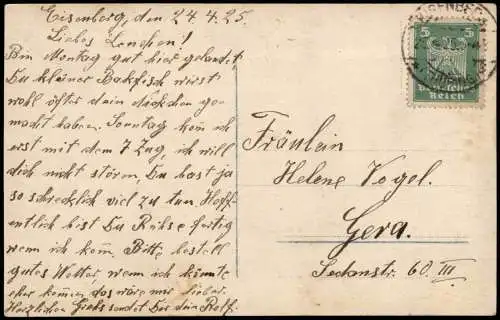 Eisenberg, den 24.4.25.
Liebes Lenchen!
Bin Montag gut hier gelandet,
Du kleiner Backfisch wirst
wohl öfter dein
macht haben. Sonntag kom ich
erst mit dem 7 Zug, ich will
dich nicht stören, Du hast ja
so schrecklich viel zu tun. Hoff-
entlich bist Du fertig
wenn ich kom. Bitte bestell
gutes Wetter, wenn ich könnte
eher kommen das wäre mir lieber.
Herzlichen Gruß sendet Dir dein Rolf.
Fräulein
Helene Vogel.
Gera.
Sedanstr. 60 III
5 5
Deutsches
Reich